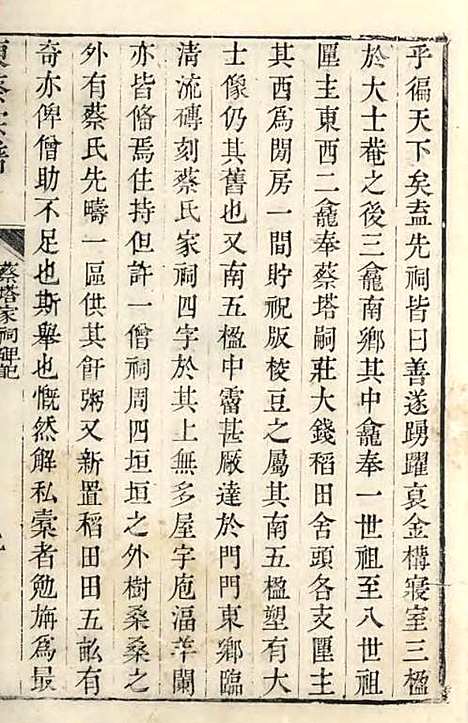 乎徧天下矣盍先祠皆曰善遂踴躍裒金構寢室三楹
於大士菴之後三龕南鄉其中龕奉一世祖至八世祖
匰主東西二龕奉蔡塔嗣莊大錢稻田舍頭各支匰主
其西爲閒房一間貯祝版梭豆之屬其南五楹塑有大
士像仍其舊也又南五楹中霤甚厰達於門門東鄉臨
清流磚刻蔡氏家祠四字於其上無多屋字庖湢井闌
亦皆俻焉住持但許一僧祠周四垣垣之外樹桑桑之
外有蔡氏先疇一區供其飦粥又新置稻田田五畝有
奇亦俾僧助不足也斯舉也慨然解私橐者勉旃爲最
蔡塔家祠碑記